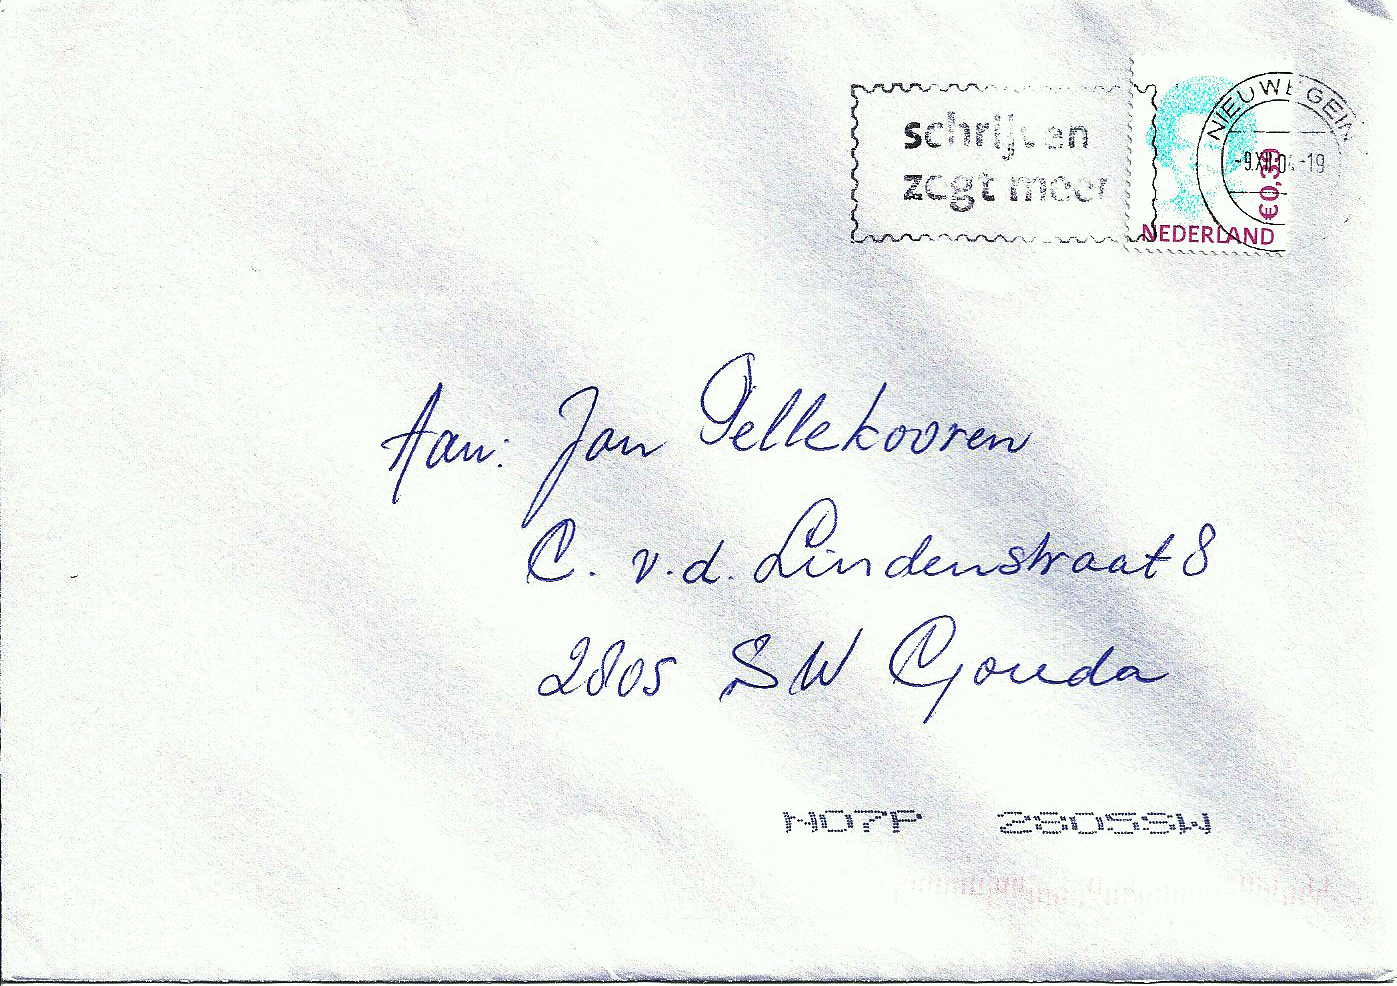 schrijven
zegt meer
NIEUWEGEIN
-9.XII.04.-19
€0,39
NEDERLAND
Aan: Jan Pellekooren
C. v.d. Lindenstraat 8
2805 SW Gouda
NO7P 2805SW